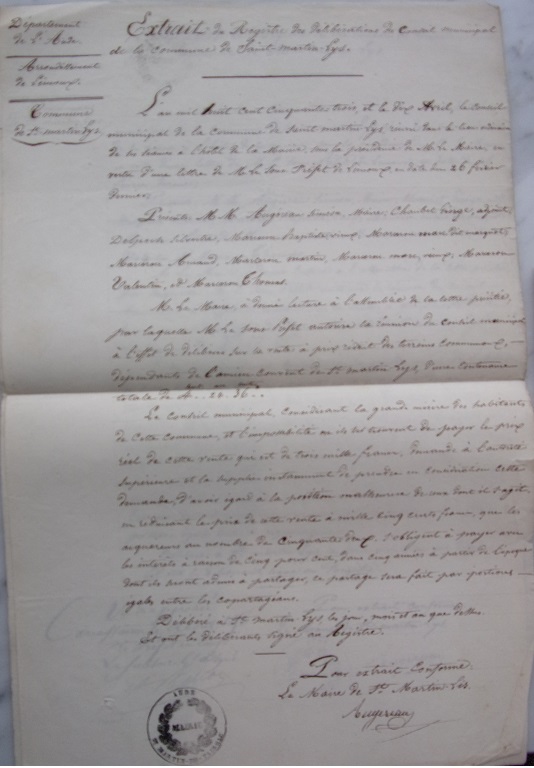 Département
de l'Aude
Arrondissement
de Limoux
Commune
de St martin Lys
Extrait du Registre des délibérations du Conseil municipal
de la commune de Saint martin Lys.
L'an mil huit cent cinquante trois, et le dix Avril, le conseil
municipal de la Commune de Saint martin Lys réuni dans le lieu ordinaire
de ses séances à l'hôtel de la Mairie, sous la présidence de M. Le Maire, en
vertu d'une lettre de M. Le Sous Préfet de Limoux en date du 26 février
dernier,
Présents M.M. Augereau Siméon, Maire, adjoint,
Delpech Marceron Baptiste vieux, Marceron marc dit
Marceron Amand, Marceron martin, Marceron marc, vieux, Marceron
Valentin, et Marceron Thomas.
M. Le Maire, a donné lecture à l'assemblée de la lettre précitée,
par laquelle M. Le Sous Préfet autorise la réunion du Conseil municipal
à l'effet de délibérer sur la vente à prix réduit des terrains communaux,
dépendants de l'ancien couvent de St martin Lys, d'une contenance
totale de
Le Conseil municipal, considérant la grande misère des habitants
de cette commune, et l'impossibilité où ils se trouvent de payer le prix
réel de cette vente qui est de trois mille francs, demande à l'autorité
Supérieure et la supplie instamment de prendre en considération cette
demande, d'avoir égard à la position malheureuse de ceux dont il s'agit,
en réduisant le prix de cette vente à mille cinq cents francs, que les
acquéreurs au nombre de Cinquante deux s'obligent à payer avec
les intérêts à raison de cinq pour cent, dans cinq années à partir de l'époque
dont ils seront admis à partager, ce partage sera fait par portions
égales entre les copartageans.
Délibéré à St martin Lys, les jour, mois et an que dessus
Et ont les délibérants signé au Registre.
Pour extrait Conforme.
Le Maire de St Martin Lys.
Augereau
MAIRIE